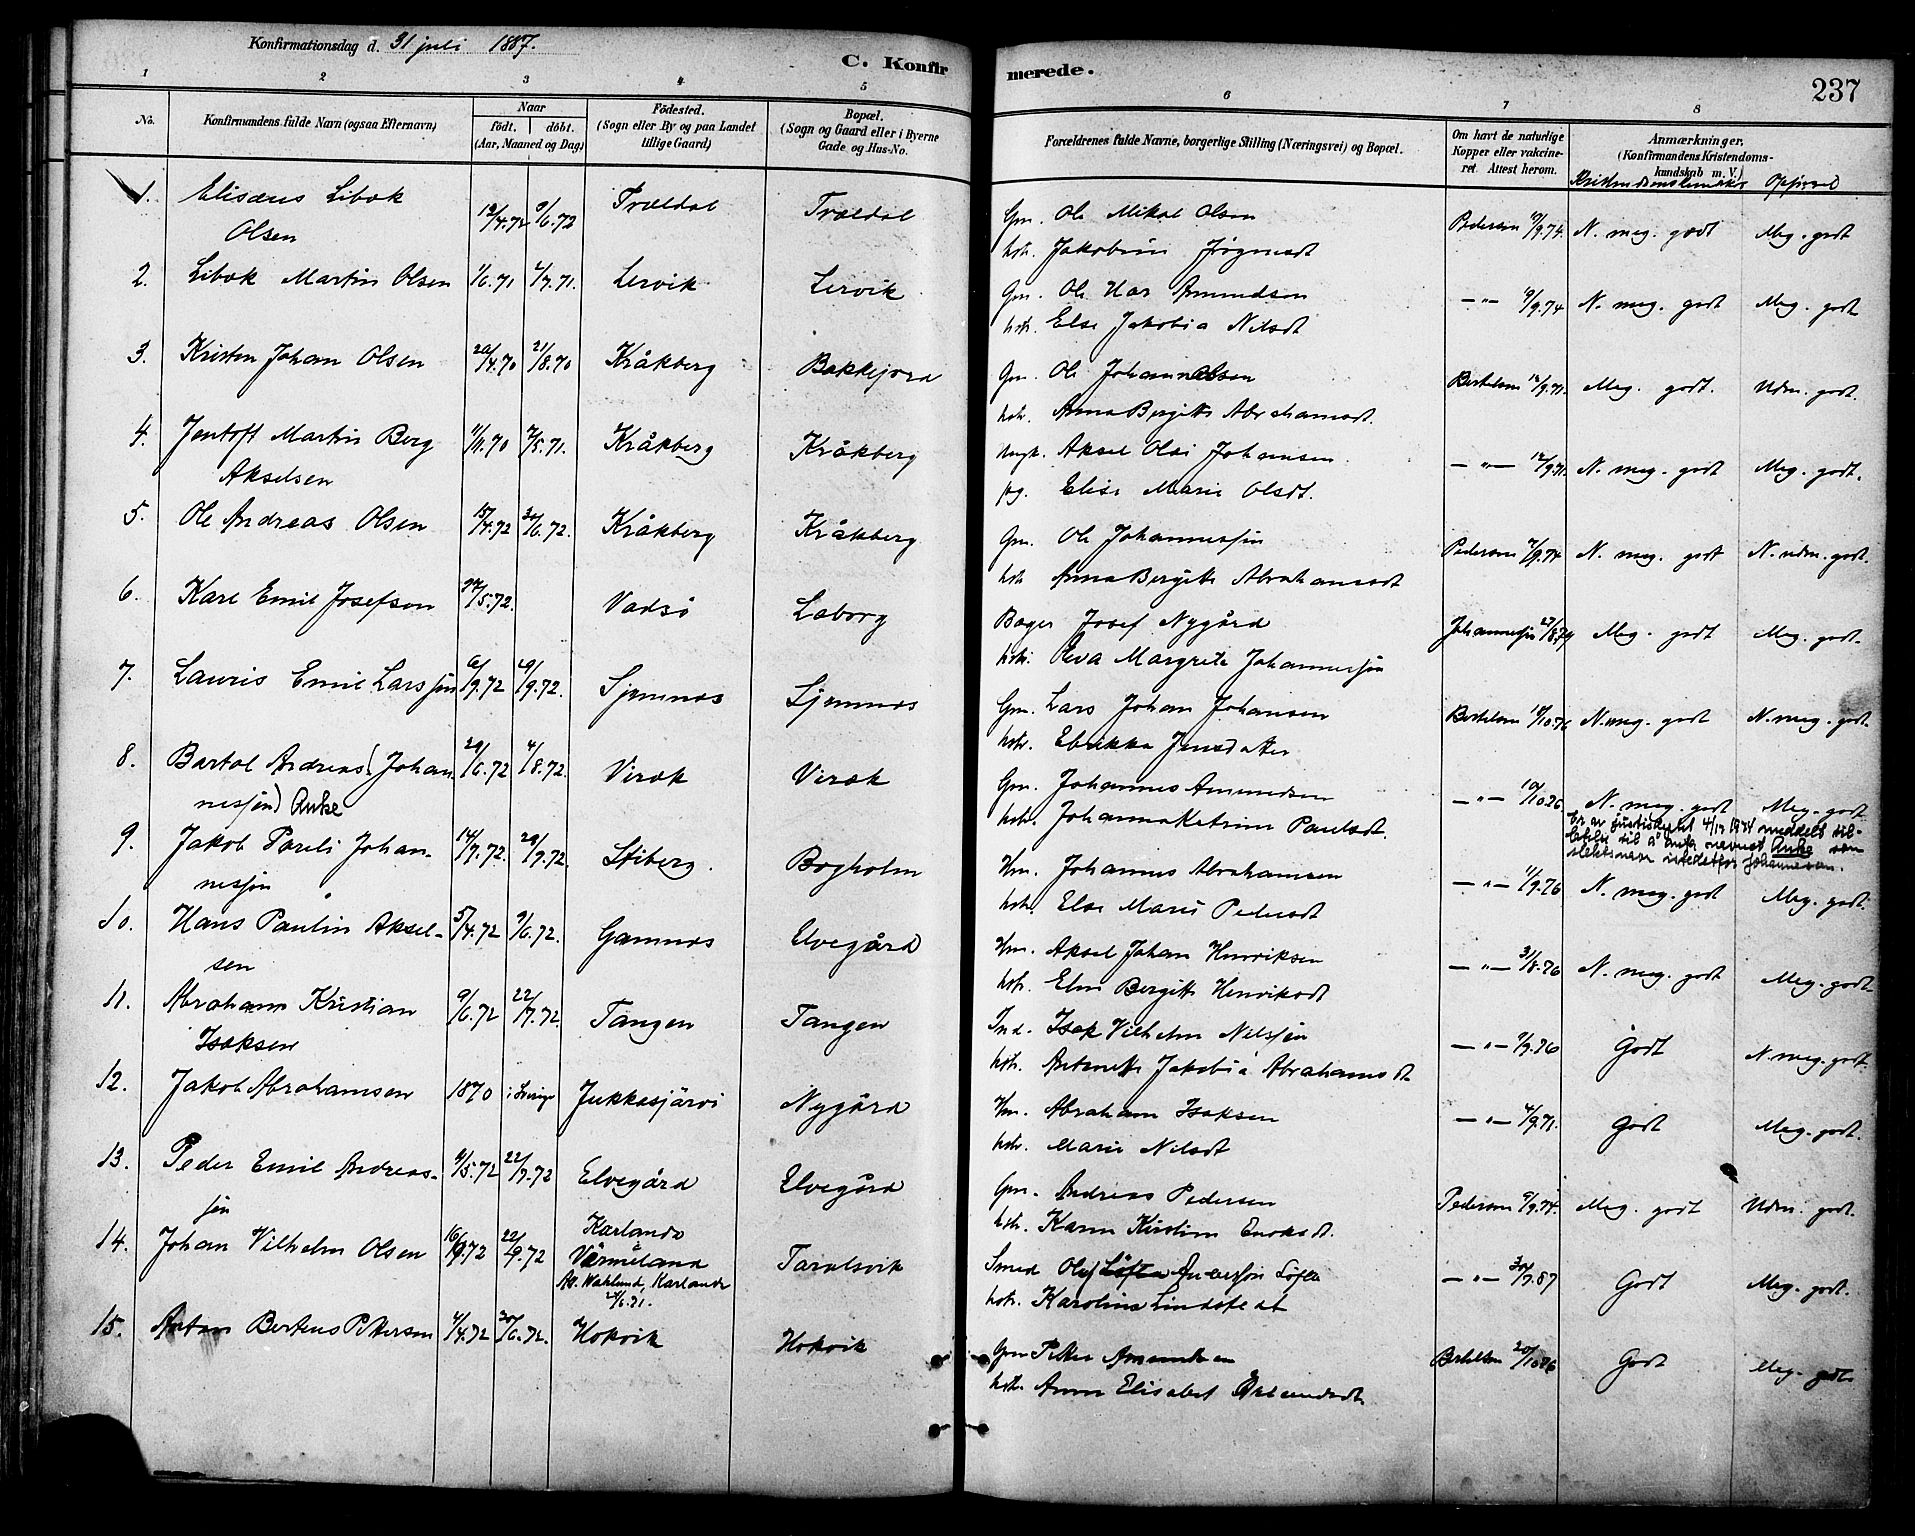 Konfirmationsdag d. 31 juli 1887.
C. Konfirmerede.
237
1 2 3 4 5 6 7 8
No.
Konfirmandens fulde Navn (ogsaa Efternavn)
Naar
födt. döbt.
(Aar, Maaned og Dag)
Födested.
(Sogn eller By og paa Landet
tillige Gaard)
Bopæl.
(Sogn og Gaard eller i Byerne
Gade og Hus-No.
Forældrenes fulde Navne, borgerlige Stilling (Næringsvei) og Bopæl.
Om havt de naturlige
Kopper eller vakcine-
ret. Attest herom.
Anmærkninger.
(Konfirmandens Kristendoms-
kundskab m. V.)
1. Elisæus Libak 12/4.72 9/6.72 Trældal Trældal Gm. Ole Mikal Olsen Pedersen 9/9.74. N. meg. godt Meg. godt
Olsen hstr.
2. Libak Martin Olsen 1/6.71 2/7.71. Lervik Lervik Gm. Ole Amundsen —"— 9/9.74 N. meg. godt Meg. godt
hstr. Else Jakobia Nilsdt
3. Kristen Johan Olsen 20/4.70 21/8.70 Kråkberg Bakkejord Gm. Ole Johannessen Bertelsen 12/9.71. Meg. godt. Udm. godt.
hstr. Anna Bergitte Abrahamsdt.
4. Jentoft Martin Berg 11/11.70 7/5.71. Kråkberg Kråkberg Ungk. Aksel Olai Johansen —"— 12/9.71. N. meg. godt Meg. godt.
Akselsen pg. Elise Marie Olsdt.
5. Ole Andreas Olsen 15/4.72 30/6.72. Kråkberg Kråkberg Gm. Ole Johannessøn Pedersen 7/9.74 N. meg. godt N. udm. godt.
hstr Anna Bergitte Abrahamsdt
6. Karl Emil Josefson 27/5.72. Vadsö Laborg Bager Josef Nygård Johannessen 27/8.74 Meg. godt Meg. godt.
hstr. Eva Margrete Johannessøn
7. Lauris Emil Larssøn 6/9.72 29/9.72. Sjemnes Sjemnes Gm. Lars Johan Johansen Bertelsen 10/10.76 N. meg. godt N. meg. godt.
hstr. Jensdatter
8. Bartol Andreas (Johan 29/6.72 4/8.72. Virak Virak Gm. Johannes Amundsen —"— 10/10.76 N. meg. godt Meg. godt
nessøn) Anke hstr. Johanna Katrine Paulsdt.
Er av justisdept 4/12 1924 meddelt til-
latelse til å anta navnet Anke som
slektsnavn istedetfor Johannessen.
9. Jakob Pareli Johan- 14/7.72. 29/9.72. Stiberg. Bogholm Hm. Johannes Abrahamsen —"— 1/9.76 N. meg. godt Meg. godt.
nessøn hstr. Else Marie Pedersdt
10. Hans Paulin Aksel- 5/4.72 9/6.72. Gamnes Elvegård Hm. Aksel Johan Henriksen —"— 31/8.76 N. meg. godt Meg. godt
sen hstr. Elen Bergitte Henriksdt
11. Abraham Kristian 9/6.72 22/7.72. Tangen Tangen Ind. Isak Vilhelm Nilssøn —"— 1/9.76 Godt N. meg. godt
Isaksen hstr. Antonette Jakobia Abrahamsdt
12. Jakob Abrahamsen 1870 i Sverige Jukkasjärvi Nygård Hm. Abraham Isaksen —"— 4/9.71. Godt Meg. godt.
hstr. Marie Nilsdt
13. Peder Emil Andreas- 9/5.72 22/7.72 Elvegård Elvegård Gm. Andreas Pedersen Pedersen 9/9.74. Meg. godt Udm. godt.
søn hstr. Karen Kirstine Enoksdt.
14. Johan Vilhelm Olsen 16/9.72 22/9.72 Karlanda Taralsvik Smed Olof Andersson Löfte —"— 30/7.87 Godt Meg. godt.
Värmeland
Av. Waklund, Karlanda
hstr. Karolina Lindstedt
15. Anton Berteus Pettersen 4/4.72 30/6.72. Hokvik Hokvik Gm Petter Amundsen Bertelsen 20/10.86 Godt Meg. godt.
hstr. Anne Elisabet